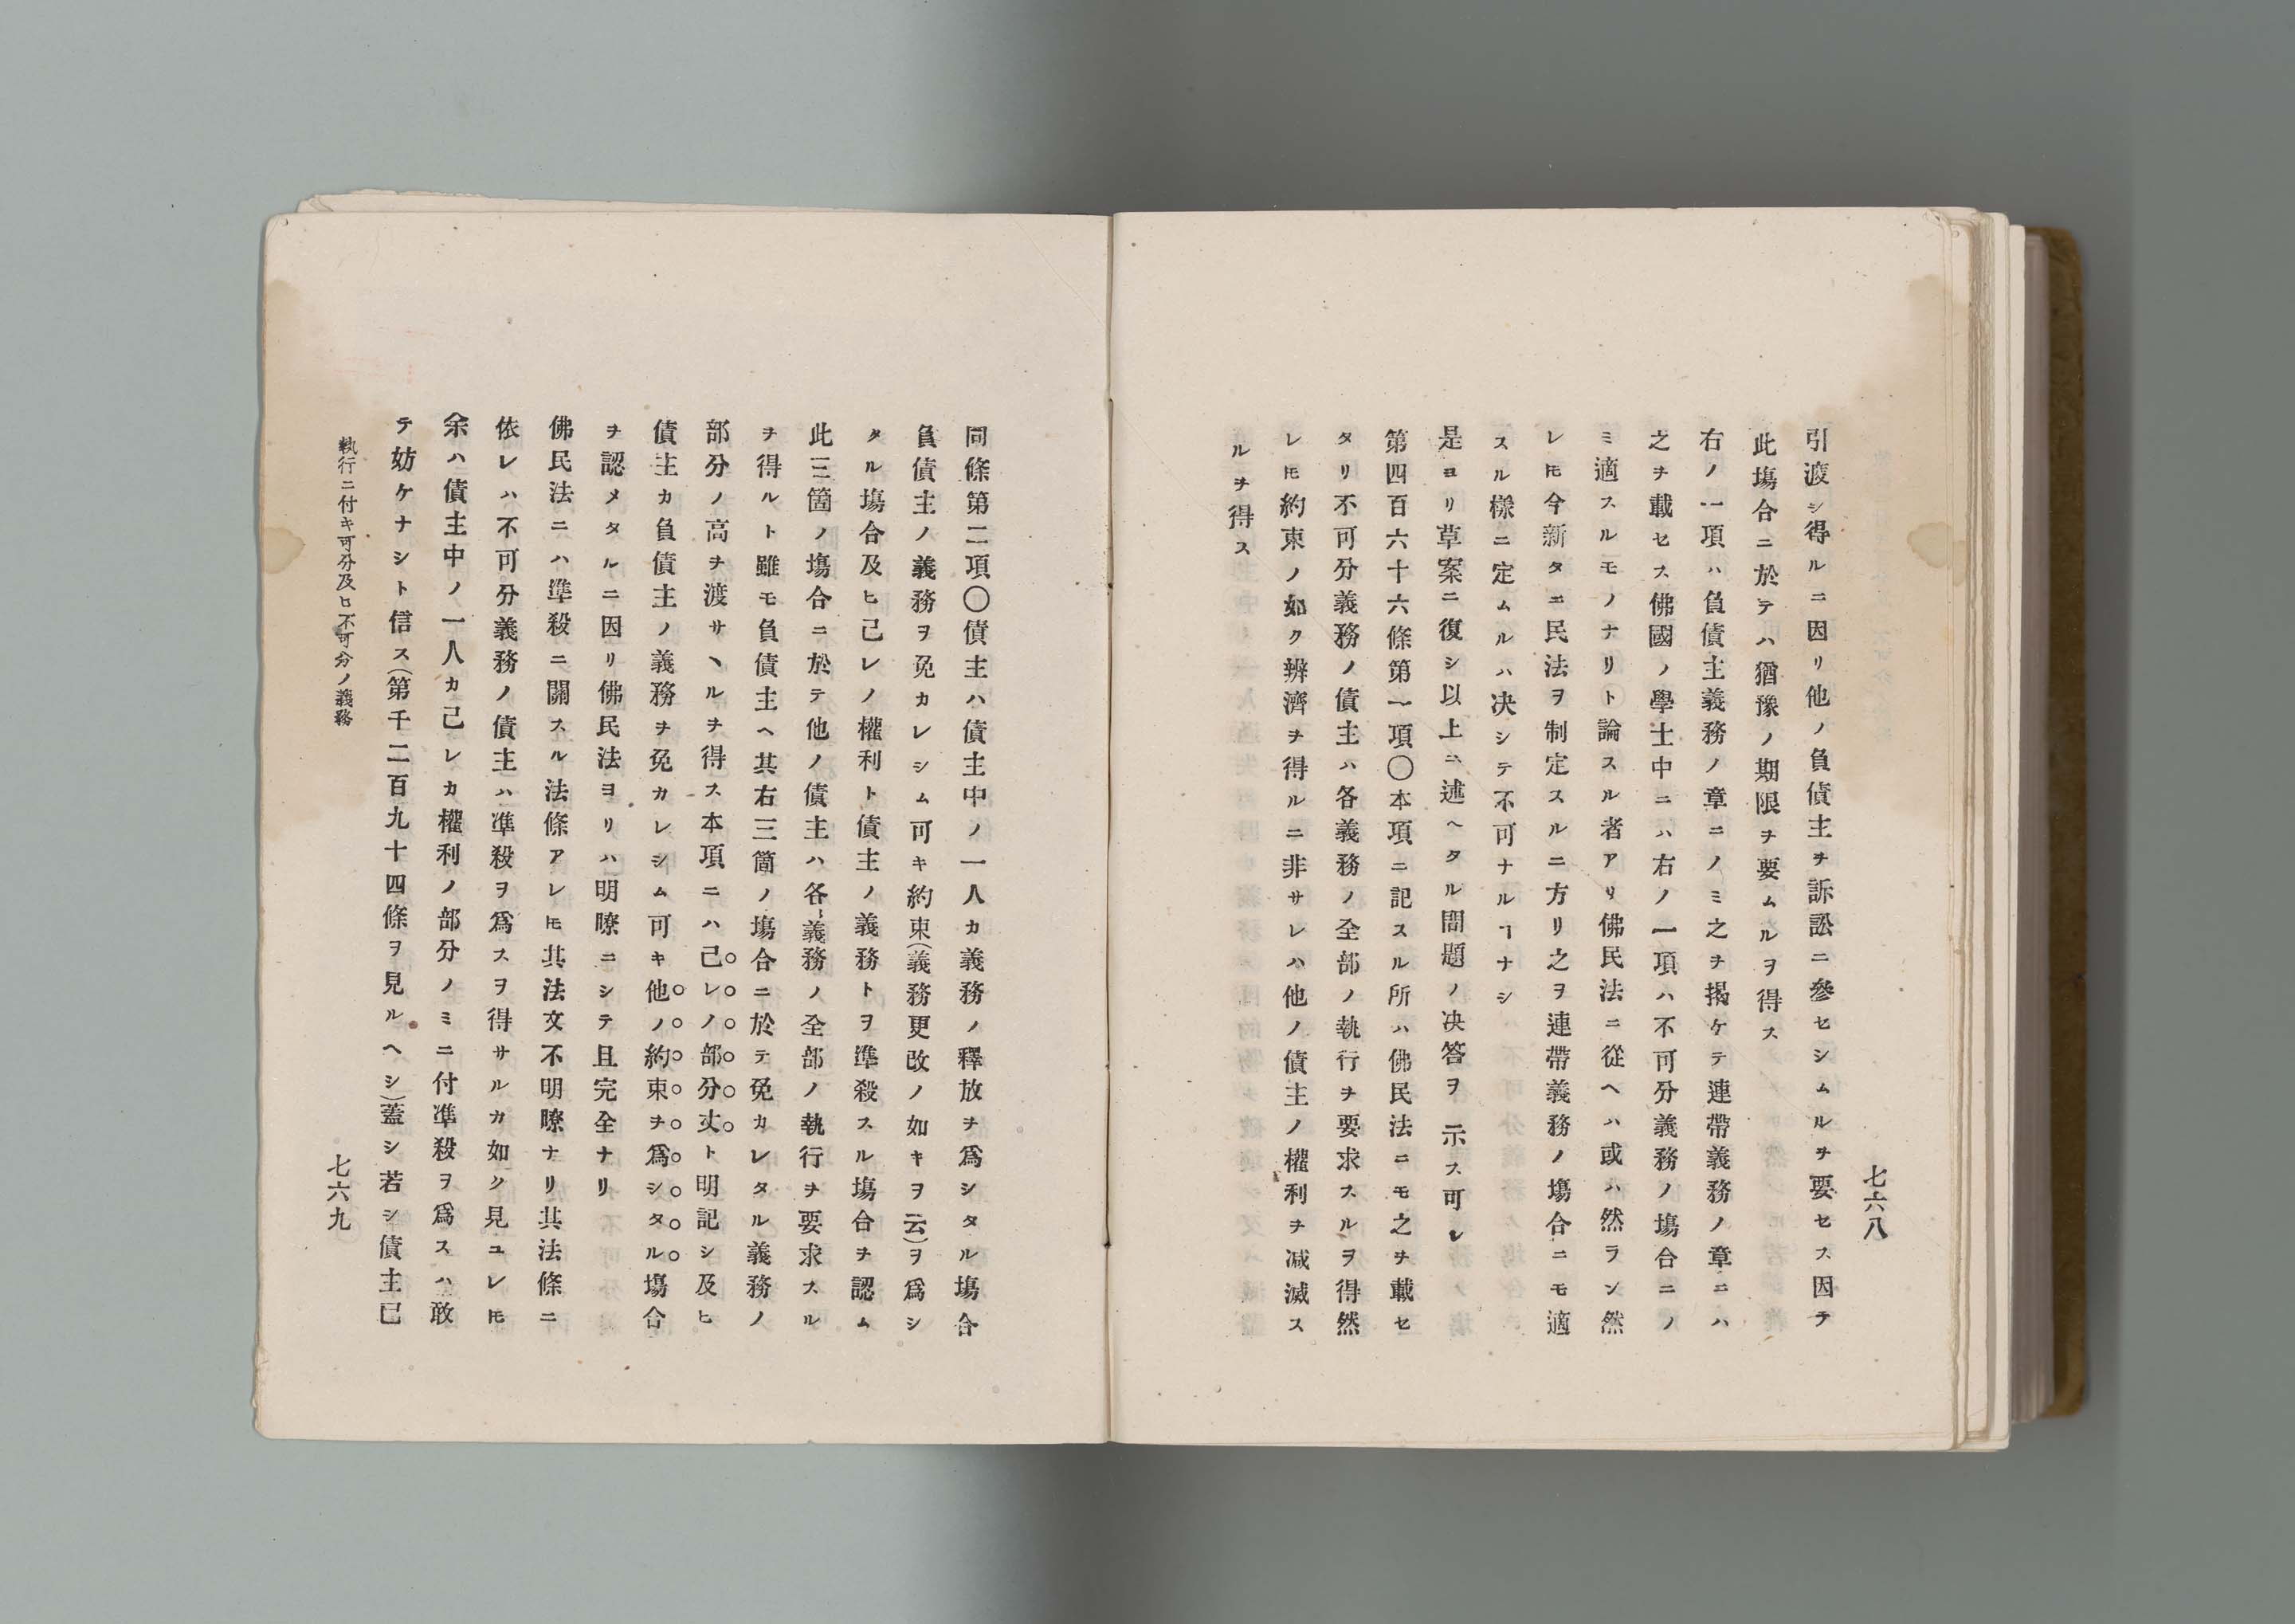 七六八
引渡シ得ルニ因リ他ノ負債主ヲ訴訟ニ參セシムルヲ要セス因テ
此塲合ニ於テハ猶豫ノ期限ヲ要ムルヲ得ス
右ノ一項ハ負債主義務ノ章ニノミ之ヲ揭ケテ連帶義務ノ章ニハ
之ヲ載セス佛國ノ學士中ニハ右ノ一項ハ不可分義務ノ塲合ニノ
ミ適スルモノナリト論スル者アリ佛民法ニ從ヘハ或ハ然ラン然
レ𪜈今新タニ民法ヲ制定スルニ方リ之ヲ連帶義務ノ塲合ニモ適
スル樣ニ定ムルハ决シテ不可ナルヿナシ
是ヨリ草案ニ復シ以上ニ述ヘタル問題ノ决答ヲ示ス可レ
第四百六十六條第一項〇本項ニ記スル所ハ佛民法ニモ之ヲ載セ
タリ不可分義務ノ債主ハ各義務ノ全部ノ執行ヲ要求スルヲ得然
レ𪜈約束ノ如ク辨濟ヲ得ルニ非サレハ他ノ債主ノ權利ヲ减滅ス
ルヲ得ス
同條第二項〇債主ハ債主中ノ一人カ義務ノ釋放ヲ爲シタル塲合
負債主ノ義務ヲ免カレシム可キ約束(義務更改ノ如キヲ云)ヲ爲シ
タル塲合及ヒ己レノ權利ト債主ノ義務トヲ準殺スル塲合ヲ認ム
此三箇ノ塲合ニ於テ他ノ債主ハ各義務ノ全部ノ執行ヲ要求スル
ヲ得ルト雖モ負債主ヘ其右三箇ノ塲合ニ於テ免カレタル義務ノ
部分ノ高ヲ渡サヽルヲ得ス本項ニハ己レノ部分丈ト明記シ及ヒ
債主カ負債主ノ義務ヲ免カレシム可キ他ノ約束ヲ爲シタル塲合
ヲ認メタルニ因リ佛民法ヨリハ明瞭ニシテ且完全ナリ
佛民法ニハ準殺ニ關スル法條アレ𪜈其法文不明瞭ナリ其法條ニ
依レハ不可分義務ノ債主ハ準殺ヲ爲スヲ得サルカ如ク見ユレ𪜈
余ハ債主中ノ一人カ己レカ權利ノ部分ノミニ付準殺ヲ爲スハ敢
テ妨ケナシト信ス(第千二百九十四條ヲ見ルヘシ)蓋シ若シ債主已
執行ニ付キ可分及ヒ不可分ノ義務
七六九